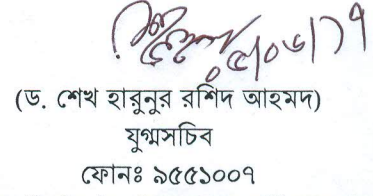 ০৫/০৬/১৭
(ড. শেখ হারুনুর রশিদ আহমদ)
যুগ্মসচিব
ফোনঃ ৯৫৫১০০৭